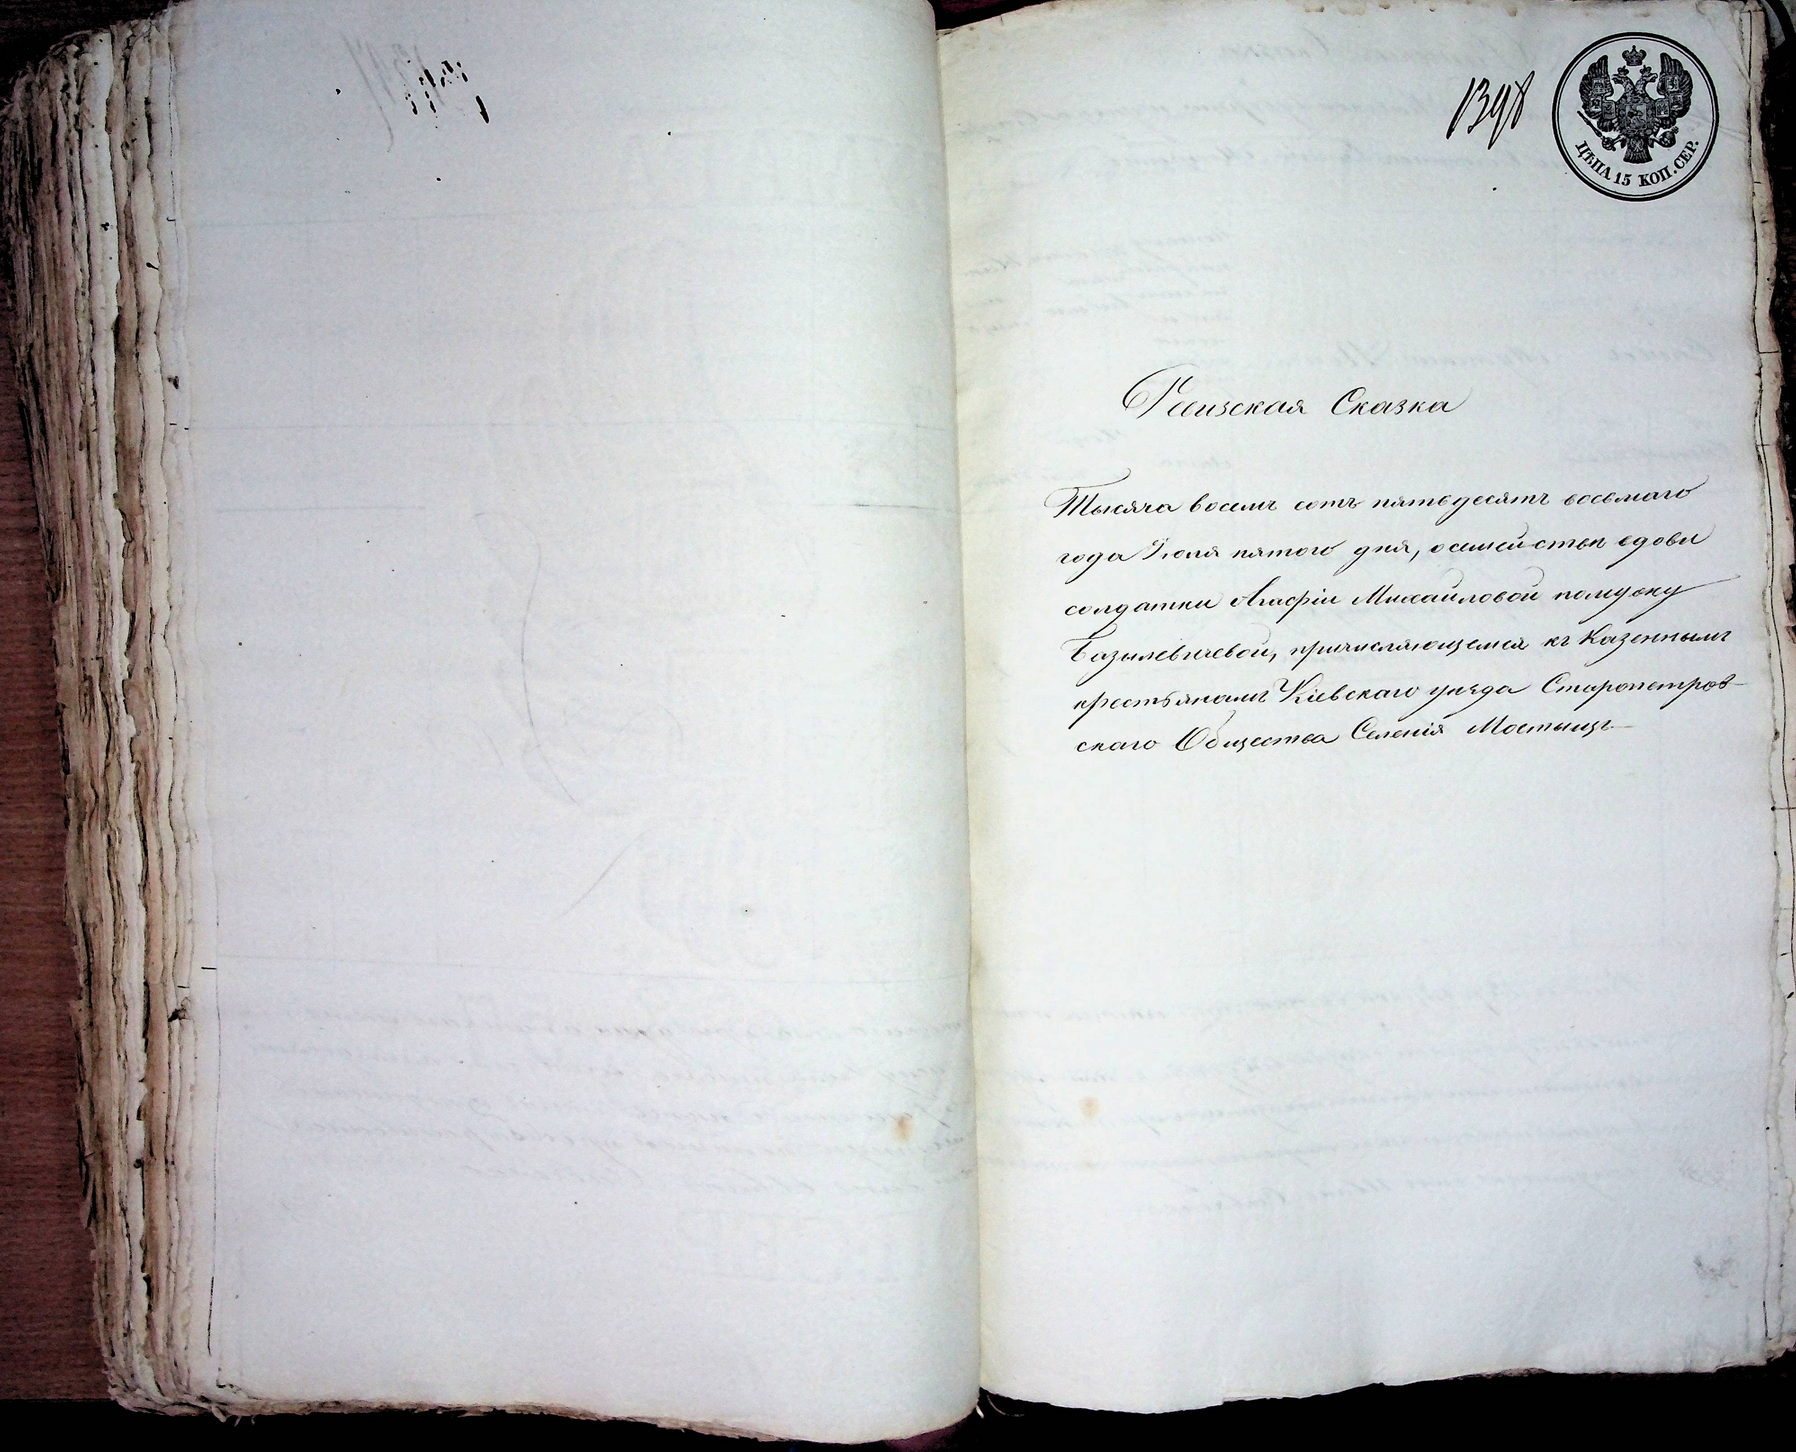 1398
ЦѢНА 15 КОП. СЕР.
Ревизская Сказка
Тысяча восемь сотъ пятьдесятъ восьмаго
года Іюля пятого дня, о семействѣ вдовы
солдатки Агафіи Михайловой по мужу
Базылевичевой, причисляющемся къ Казеннымъ
крестьянамъ Кіевскаго уѣзда Старопетров-
скаго Общества Селенія Мостыщъ